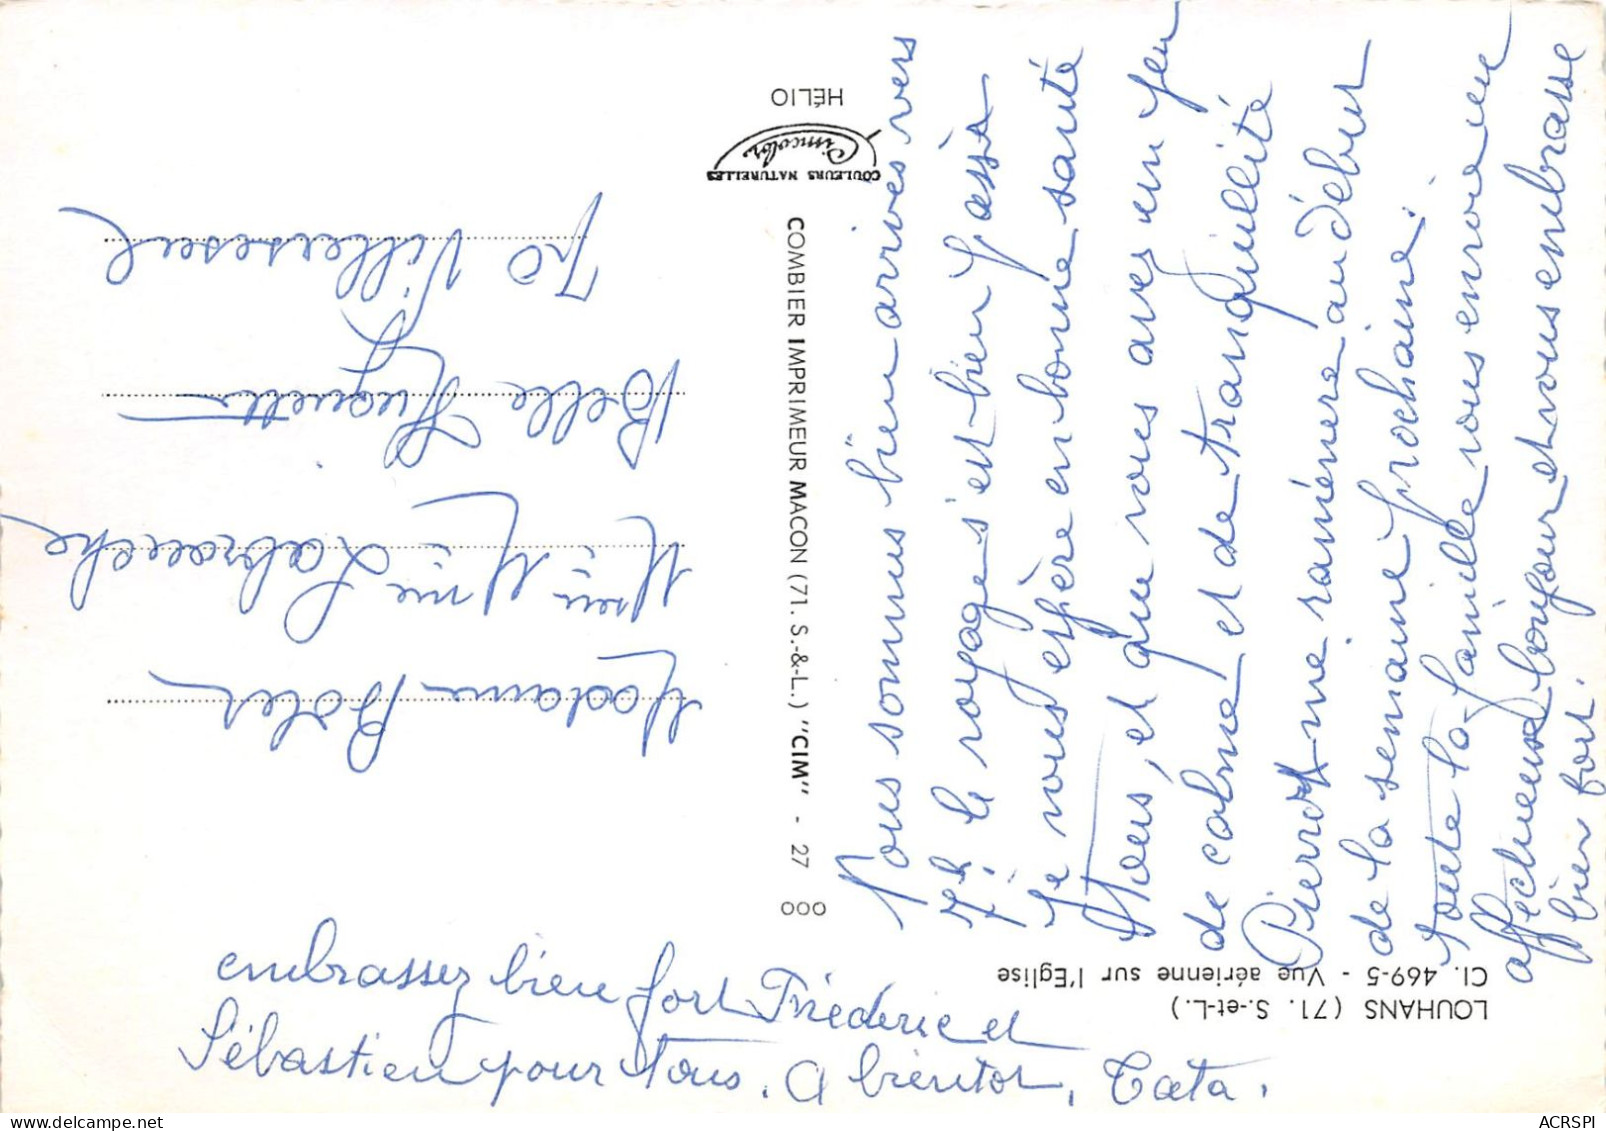 LOUHANS (71. S.-et-L.)
Cl. 469-5 - Vue aérienne sur l'Eglise
Nous sommes bien arrivés vers
7h. le voyage s'est bien passé
Je vous espère en bonne santé
tous, et que vous avez un peu
de calme, et de tranquillité
Pierrot me ramènera au début
de la semaine prochaine.
toute la famille vous envoie un
affectueux bonjour et vous embrasse
bien fort.
embrassez bien fort Fréderic et
Sébastien pour tous. A bientot, Tata.
COMBIER IMPRIMEUR MACON (71. S.-&-L.) "CIM" - 27 000
COULEURS NATURELLES
Cimcolor
HÉLIO
Madame
Labrouche
Belle Huguette
70 Villersexel
ACRSPI